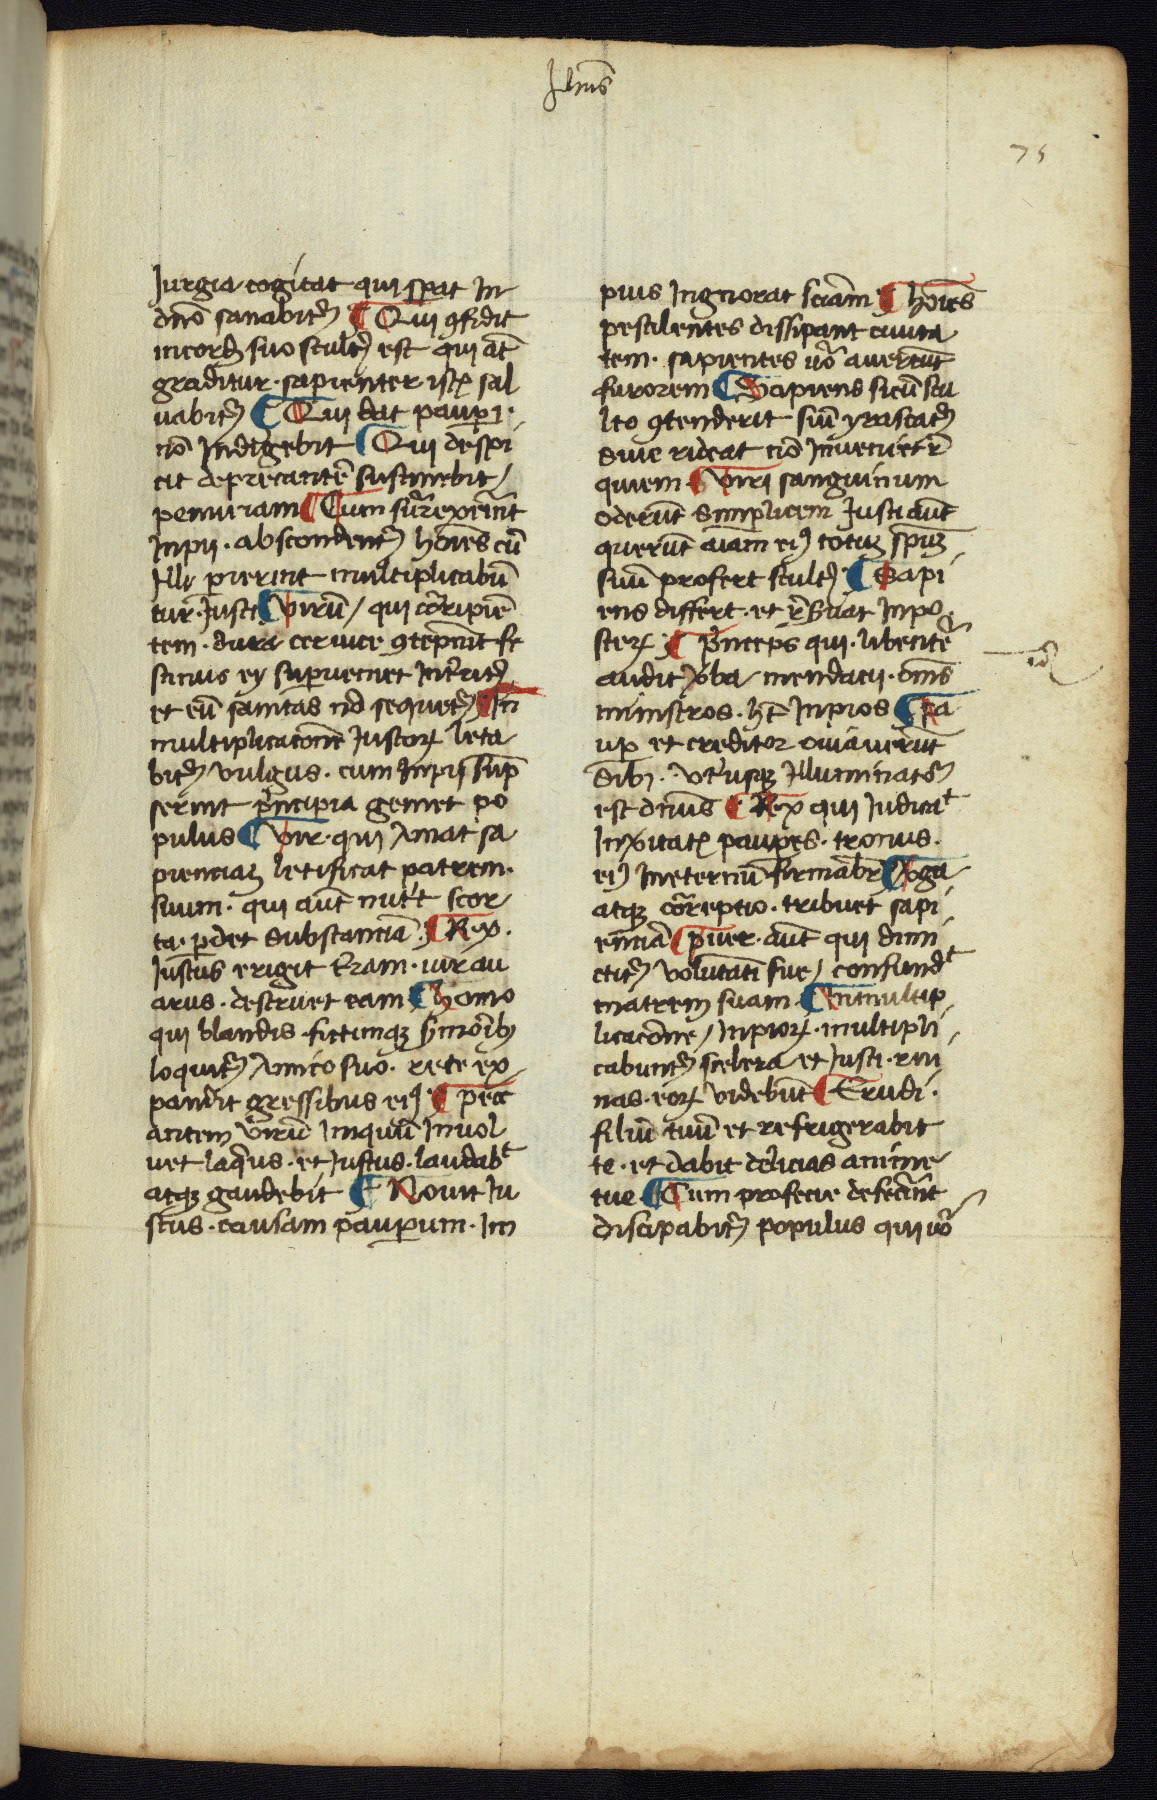 Jhūs
75
Jurgia cogitat qui sperat in
dnō sanabitᷣ ¶ Qui ꝯfidit
in cordꝫ suo stultꝰ est qui āt
graditur · sapienter istꝫ sal
uabitᷣ ¶ Qui dat pauꝑi ·
nō Indigebit ¶ Qui despi
cit deprecantē sustinebit /
penuriam ¶ Cum surrexerīt
Inpij · abscondentᷣ hoīes cū
Illi perierint multiplicabū
tur · Justi ¶ virū / qui corripiē
tem · dura ceruice ꝯtepnit re
stinus ey superueniet Interitꝰ
et eū sanitas nō sequetᷣ ¶ In
multiplicacōne Justorꝫ leta
bitᷣ vulgus · cum Inpij sūp
serint principia gemet po
pulus ¶ vir · qui Amat sa
pienciaꝫ letificat patrem ·
suum · qui aūt nutt scor
ta · ꝑdet substanciā ¶ Rex ·
Justus erigit tram · uir au
arus · destruet eam ¶ homo
qui blandis · fictisqꝫ smoībꝫ
loquitᷣ Amico suo · rete ex
pandit gressibus eiꝰ ¶ pecc
antem virū Iniquū Inuol
uet laqueus · et Justus · laudabᵗ
atqꝫ gaudebit ¶ Nouit Ju
stus · causam pauperum · Im
pius Ingnorat sciam ¶ hoīes
pestilentes dissipant ciuita
tem · sapientes uō auertūt
furorem ¶ Sapiens si cū stu
lto ꝯtenderit siue yrascatᷣ
siue rideat nō Inueniet r̄
quiem · ¶ viri sanguinum
oderūt simplicem Justi aūt
querūt aīam eiꝰ totuꝫ spm̄
suū profert stultꝰ ¶ Sapi
ens differt · et rseruat Inpo
sterꝫ ¶ Princeps qui · libentē
audit ꝟba mendacij · oīns
ministros · ht̄ Inpios ¶ pa
uꝑ et creditor ouiauerūt
sibi · utriusqꝫ Illuminatoᷣ
est dn̄us ¶ Rex qui Judicaᵗ
In ꝟitatꝫ pauꝑes · tronus ·
eiꝰ Ineternū firmabr̄ ¶ ꝟga
atqꝫ correptio · tribuet sapi
enciā ¶ puer · aūt qui dimi
ctitᷣ volūtati sue / confundᵗ
matrem suam · ¶ In multip
licacōne / Inpiorꝫ · multipli
cabuntᷣ scelera et Justi · rui
nas · eorꝫ videbūt ¶ Erudi ·
filiū tuū et refrigerabit
te · et dabit delicias anime
tue · ¶ Cum profecie defecerīt
discipabitᷣ populus qui uō